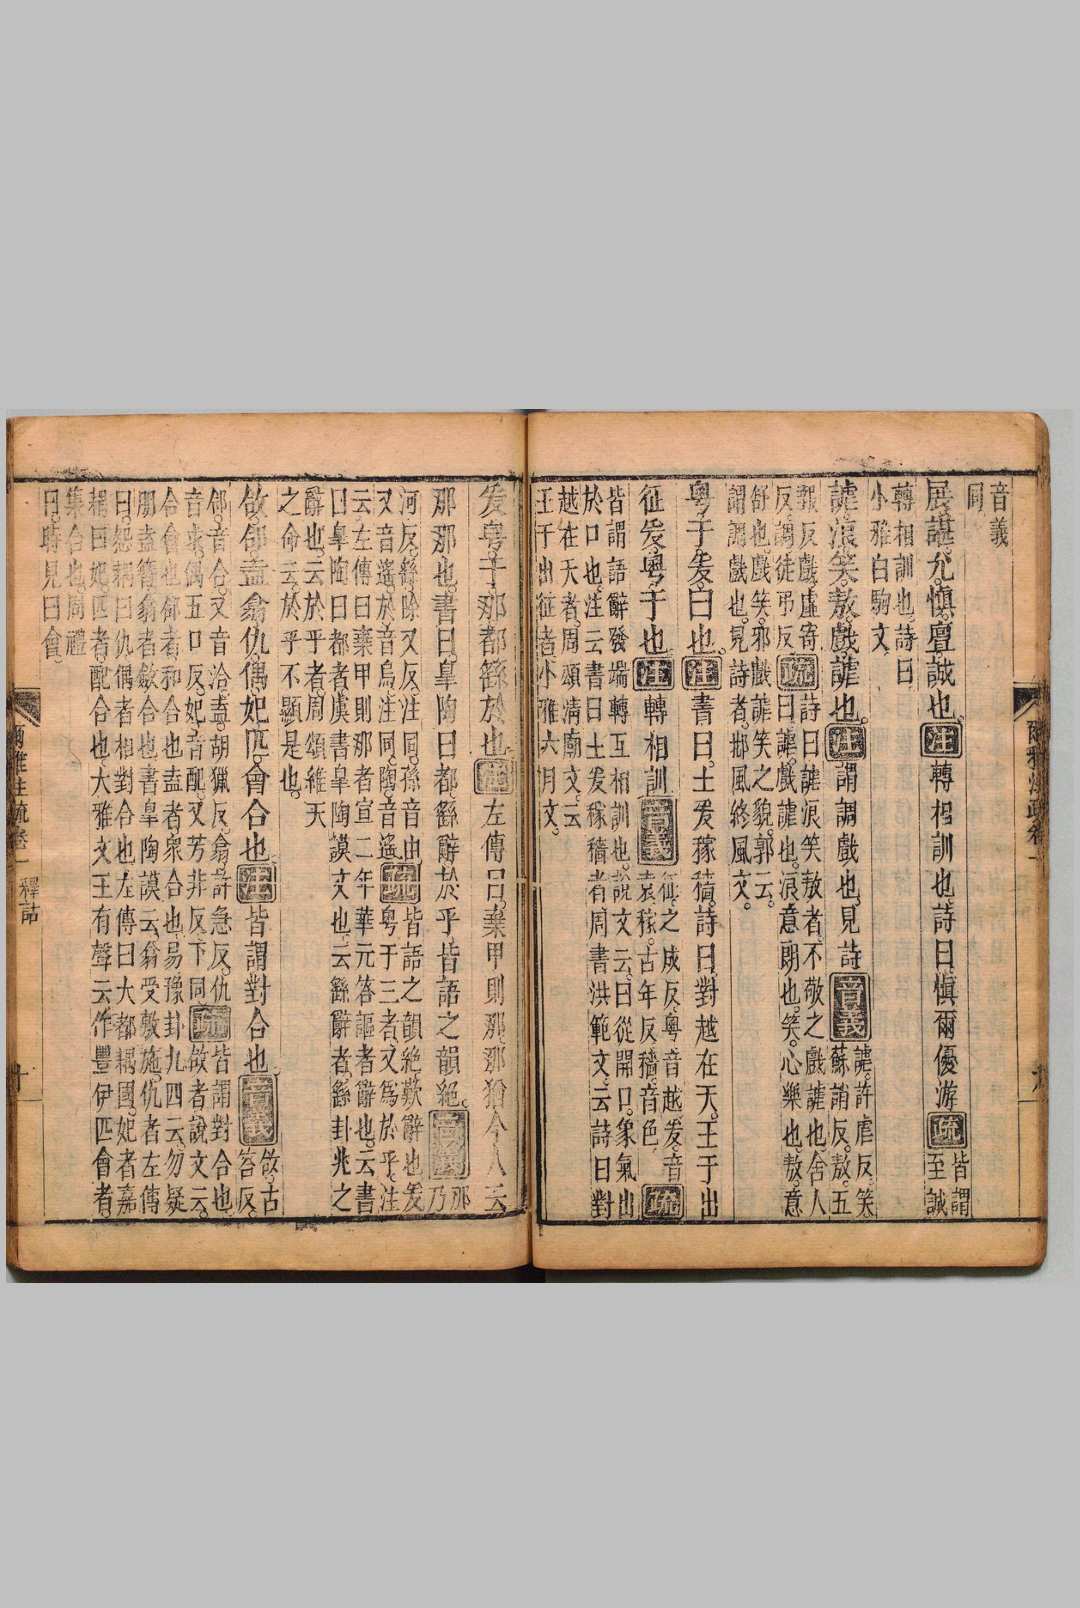 音義
同
展諶允慎亶誠也注轉相訓也詩曰慎爾優游疏皆謂
至誠
轉相訓也詩曰
小雅白駒文
謔浪笑敖戲謔也注謂調戲也見詩音義謔許虐反笑
蘇誚反敖五
報反戲虛寄疏詩曰謔浪笑敖者不敬之戲謔也舍人
反調徒弔反曰謔戲謔也浪意朗也笑心樂也敖意
舒也戲笑邪戲謔笑之貌郭云
謂調戲也見詩者邶風終風文
粵于爰曰也注書曰土爰稼穡詩曰對越在天王于出
征爰粵于也注轉相訓音義征之成反粵音越爰音
袁稼古年反穡音色疏
皆謂語辭發端轉互相訓也說文云曰從開口象氣出
於口也注云書曰土爰稼穡者周書洪範文云詩曰對
越在天者周頌清廟文云
王于出征者小雅六月文
爰粵于那都繇於也注左傳曰棄甲則那那猶今人云
那那也書曰皐陶曰都繇辭於乎皆語之韻絕音義那
乃
河反繇除又反注同孫音由疏皆語之韻絕歎辭也爰
又音遙於音烏注同陶音遙粵于三者又為於乎注
云左傳曰棄甲則那者宣二年華元答謳者辭也云書
曰皐陶曰都者虞書皐陶謨文也云繇辭者繇卦兆之
辭也云於乎者周頌維天
之命云於乎不顯是也
敆郃盍翕仇偶妃匹會合也注皆謂對合也音義敆古
答反
郃音合又音洽盍胡獵反翕許急反仇疏皆謂對合也
音求偶五口反妃音配又芳非反下同敆者說文云
合會也郃者和合也盍者衆合也易豫卦九四云勿疑
朋盍簪翕者斂合也書皐陶謨云翕受敷施仇者左傳
曰怨耦曰仇偶者相對合也左傳曰大都耦國妃者嘉
耦曰妃匹者配合也大雅文王有聲云作豐伊匹會者
集合也周禮
曰時見曰會
爾雅注疏卷一 釋詁 十